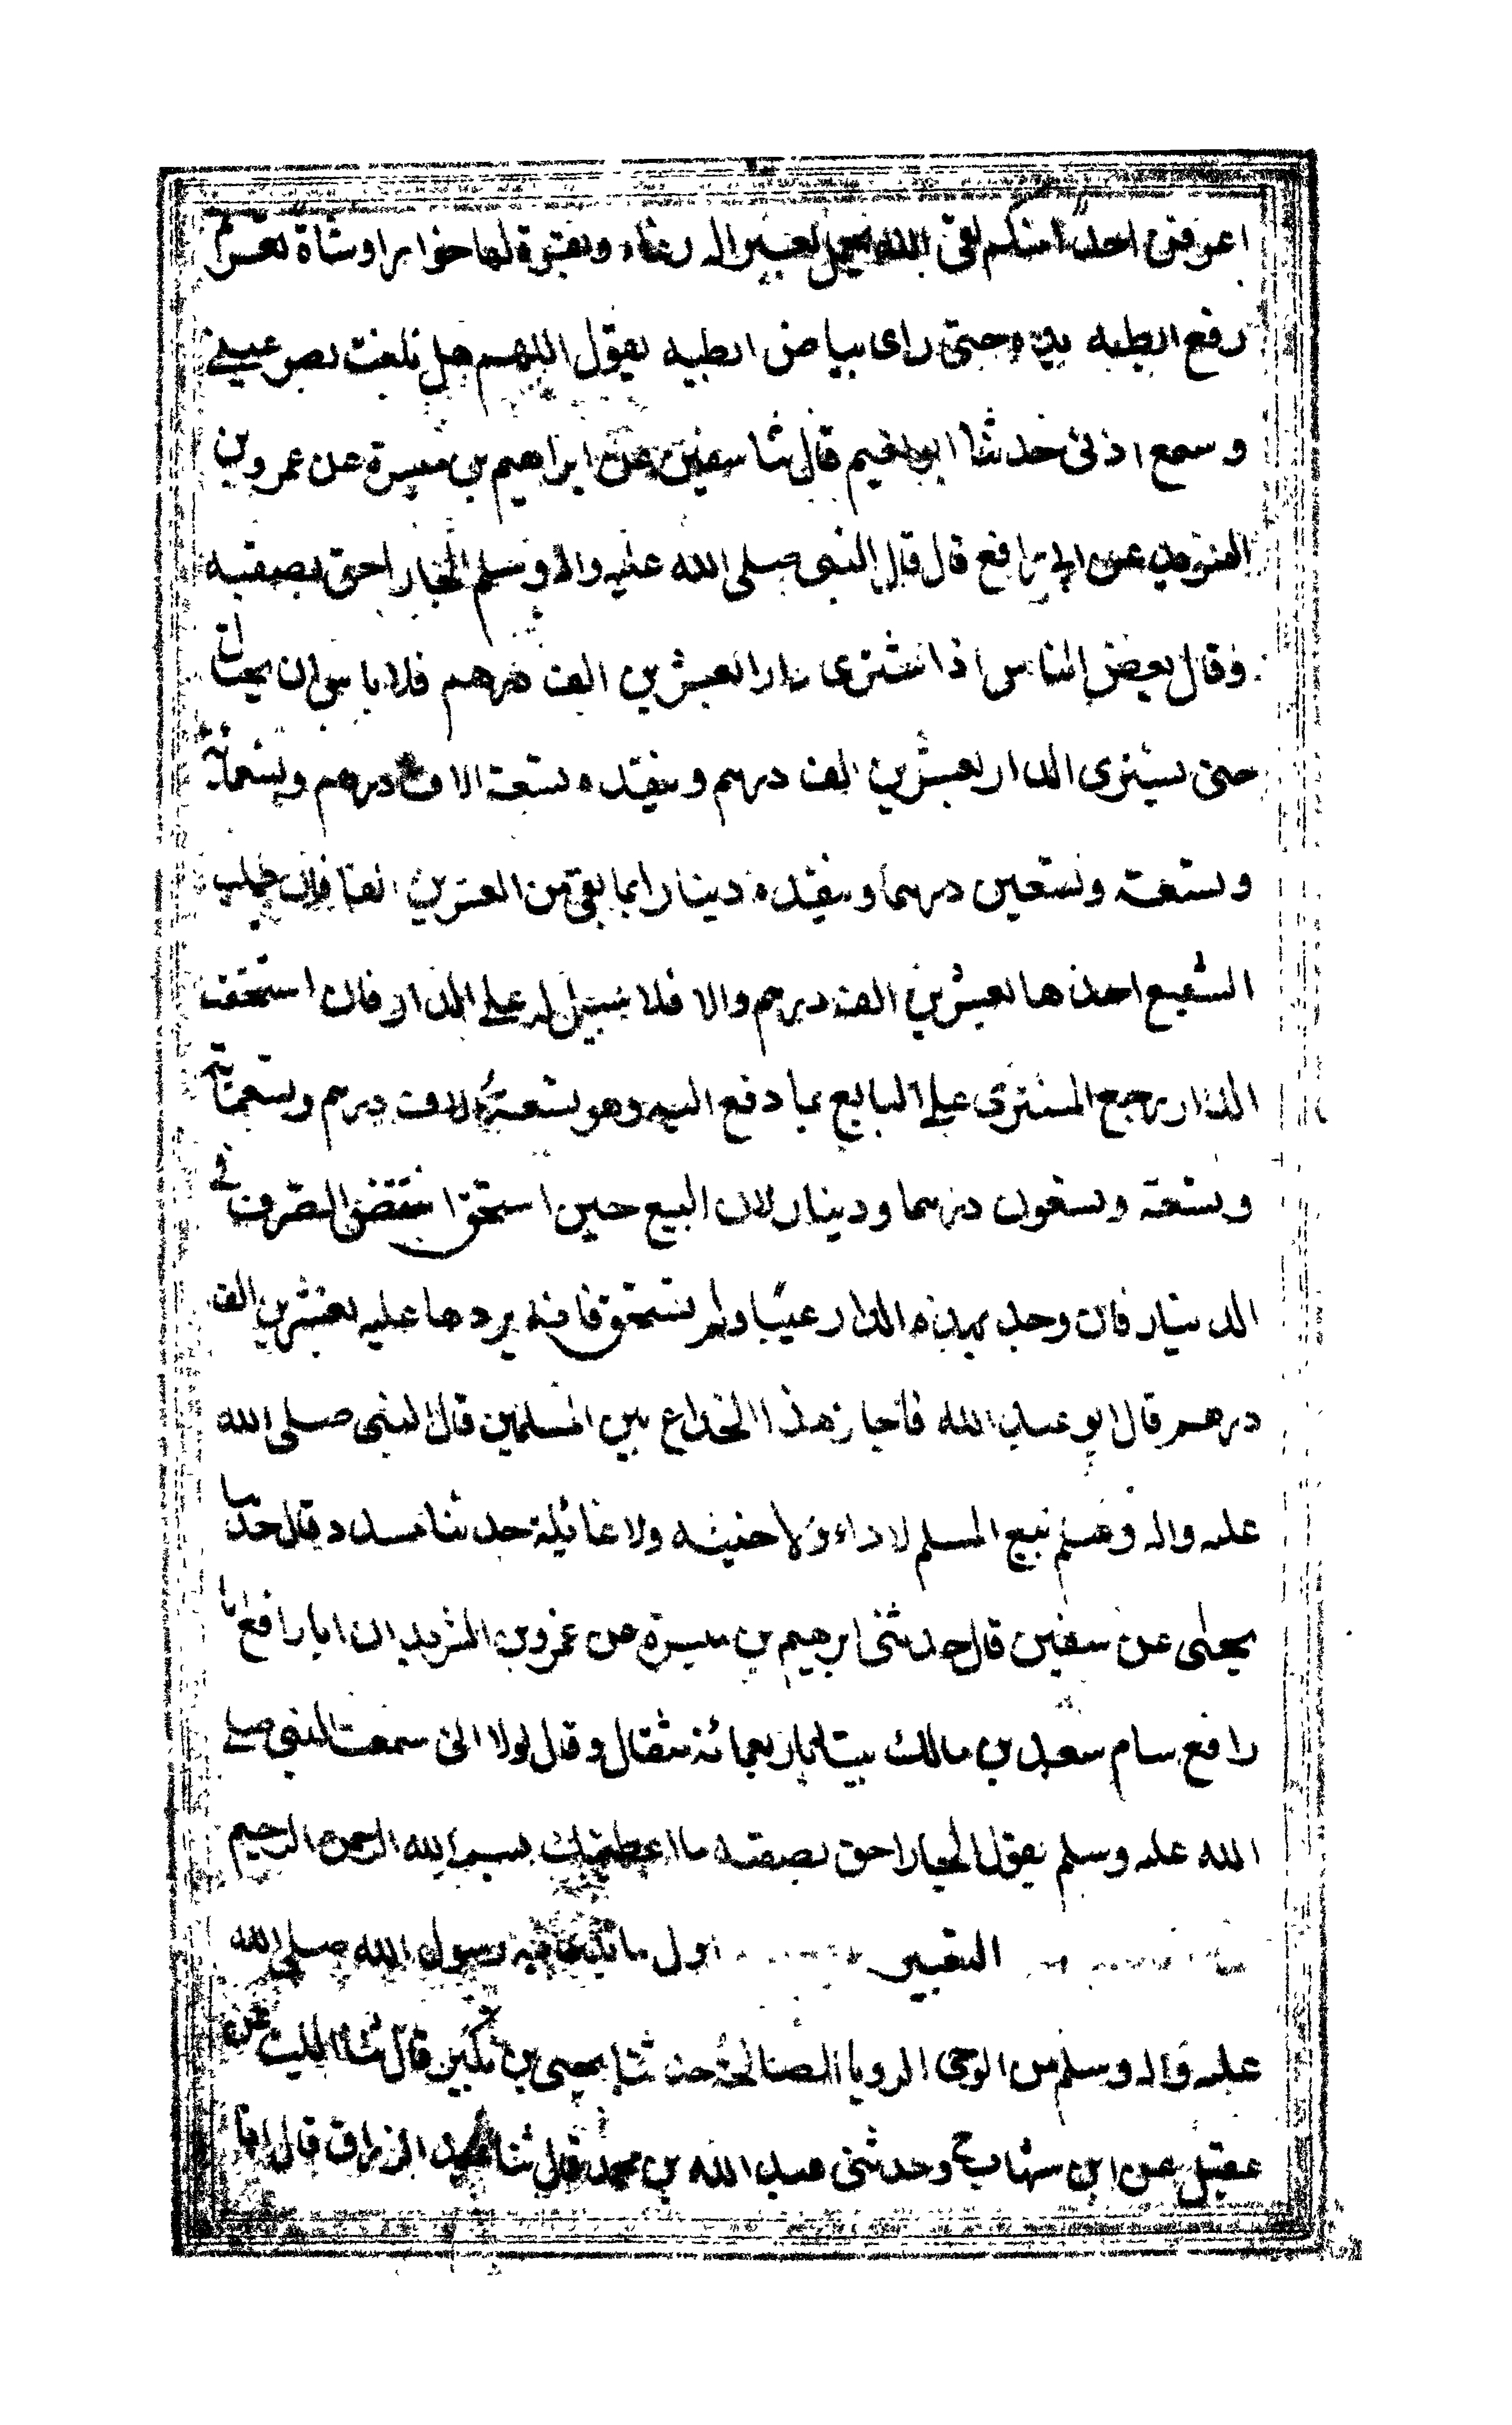 اعرفن احدا منكم لقى الله يحمل بعيرا له رغاء وبقرة لها خوار او شاة تيعر ثم
رفع ابطيه يديه حتى راى بياض ابطيه يقول اللهم هل بلغت بصر عيني
وسمع اذنى حدثنا ابو نعيم قال ثنا سفين عن ابراهيم بن ميسرة عن عمرو بن
الشريد عن ابى رافع قال قال النبى صلى الله عليه واله وسلم الجار احق بصقبه
وقال بعض الناس اذا اشترى دارا بعشرين الف درهم فلا باس ان يحتال
حتى يشترى الدار بعشرين الف درهم وينقده تسعة الاف درهم وتسعمائة
وتسعة وتسعين درهما وينقده دينارا بما بقى من العشرين الفا فان طلب
الشفيع اخذها بعشرين الف درهم والا فلا سبيل له على الدار فان استحقت
الدار رجع المشترى على البايع بما دفع اليه وهو تسعة الاف درهم وتسعمائة
وتسعة وتسعون درهما ودينار لان البيع حين استحق انتقض الصرف فى
الدينار فان وجد بهذه الدار عيبا ولم تستحق فانه يردها عليه بعشرين الف
درهم قال ابو عبد الله فاجاز هذا الخداع بين المسلمين قال النبى صلى الله
عليه واله وسلم بيع المسلم لا داء ولا خبثه ولا غائلة حدثنا مسدد قال حدثنا
يحيى عن سفين قال حدثنى ابرهيم بن ميسرة عن عمرو بن الشريد ان ابا رافع ابا
رافع سام سعد بن مالك بيتا باربعمائة مثقال وقال لولا انى سمعت النبى صلى
الله عليه وسلم يقول الجار احق بصقبه ما اعطيتك بسم الله الرحمن الرحيم
التعبير اول ما بدئ به رسول الله صلى الله
عليه واله وسلم من الوحى الرويا الصالحة حدثنا يحيى بن بكير قال ثنا الليث عن
عقيل عن ابن شهاب ح وحدثنى عبد الله بن محمد قال ثنا عبد الرزاق قال انا